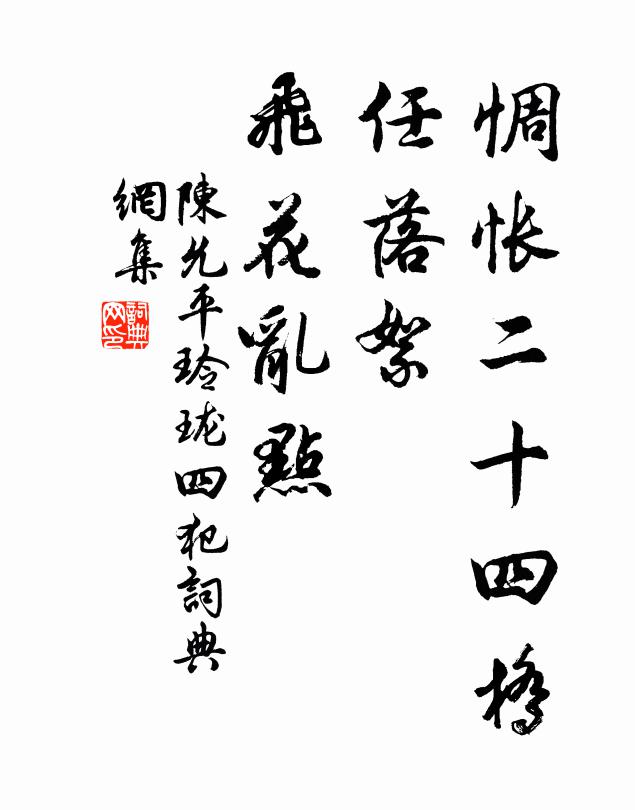 惆悵二十四橋
任落絮
飛花亂點
陳允平玲瓏四犯詞典
網集
詞典
网印